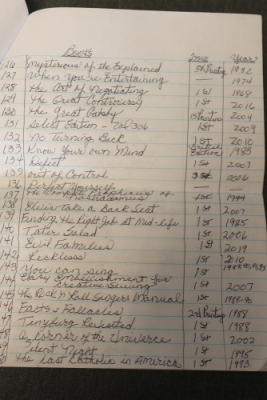 Books Issue Year
126 Mysterious of the Explained 1992
127 When You're Entertaining — 1974
128 The Art of Negotiating 1st 1968
129 The Great Controversy 1st 2016
130 The Great Gatsby 2004
131 Select Edition - Vol 306 1st 2009
132 No Turning Back 1st 2010
133 Know Your Own Mind 1983
134 1st 2007
135 Out of Control 1st 2016
136 Yourself —
137 The of Nostradamus 1st 1994
138 Blues Take a Back Seat 1st 2007
139 Finding the Right Job at Mid-life 1st 1985
140 Tater Salad 1st 2006
141 Evil Families 1st 2019
142 Reckless 1st 2010
143 You can Sing 1st
144 Easy Embellishment for Creative Sewing 1st 2007
145 The Rock N Roll Singers Manual 1st
146 Facts & Fallacies 2nd Printing 1988
47 Tinyburg Revisited 1st 1988
48 A Corner of the Universe 1st 2002
Silent Night 1st 1995
The Last Catholic in America 1st 1973